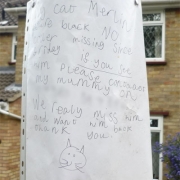 cat Merlin
black NO
missing since
friday if you see
him please contact
my mummy on
We really miss him
and want him
back
thank you